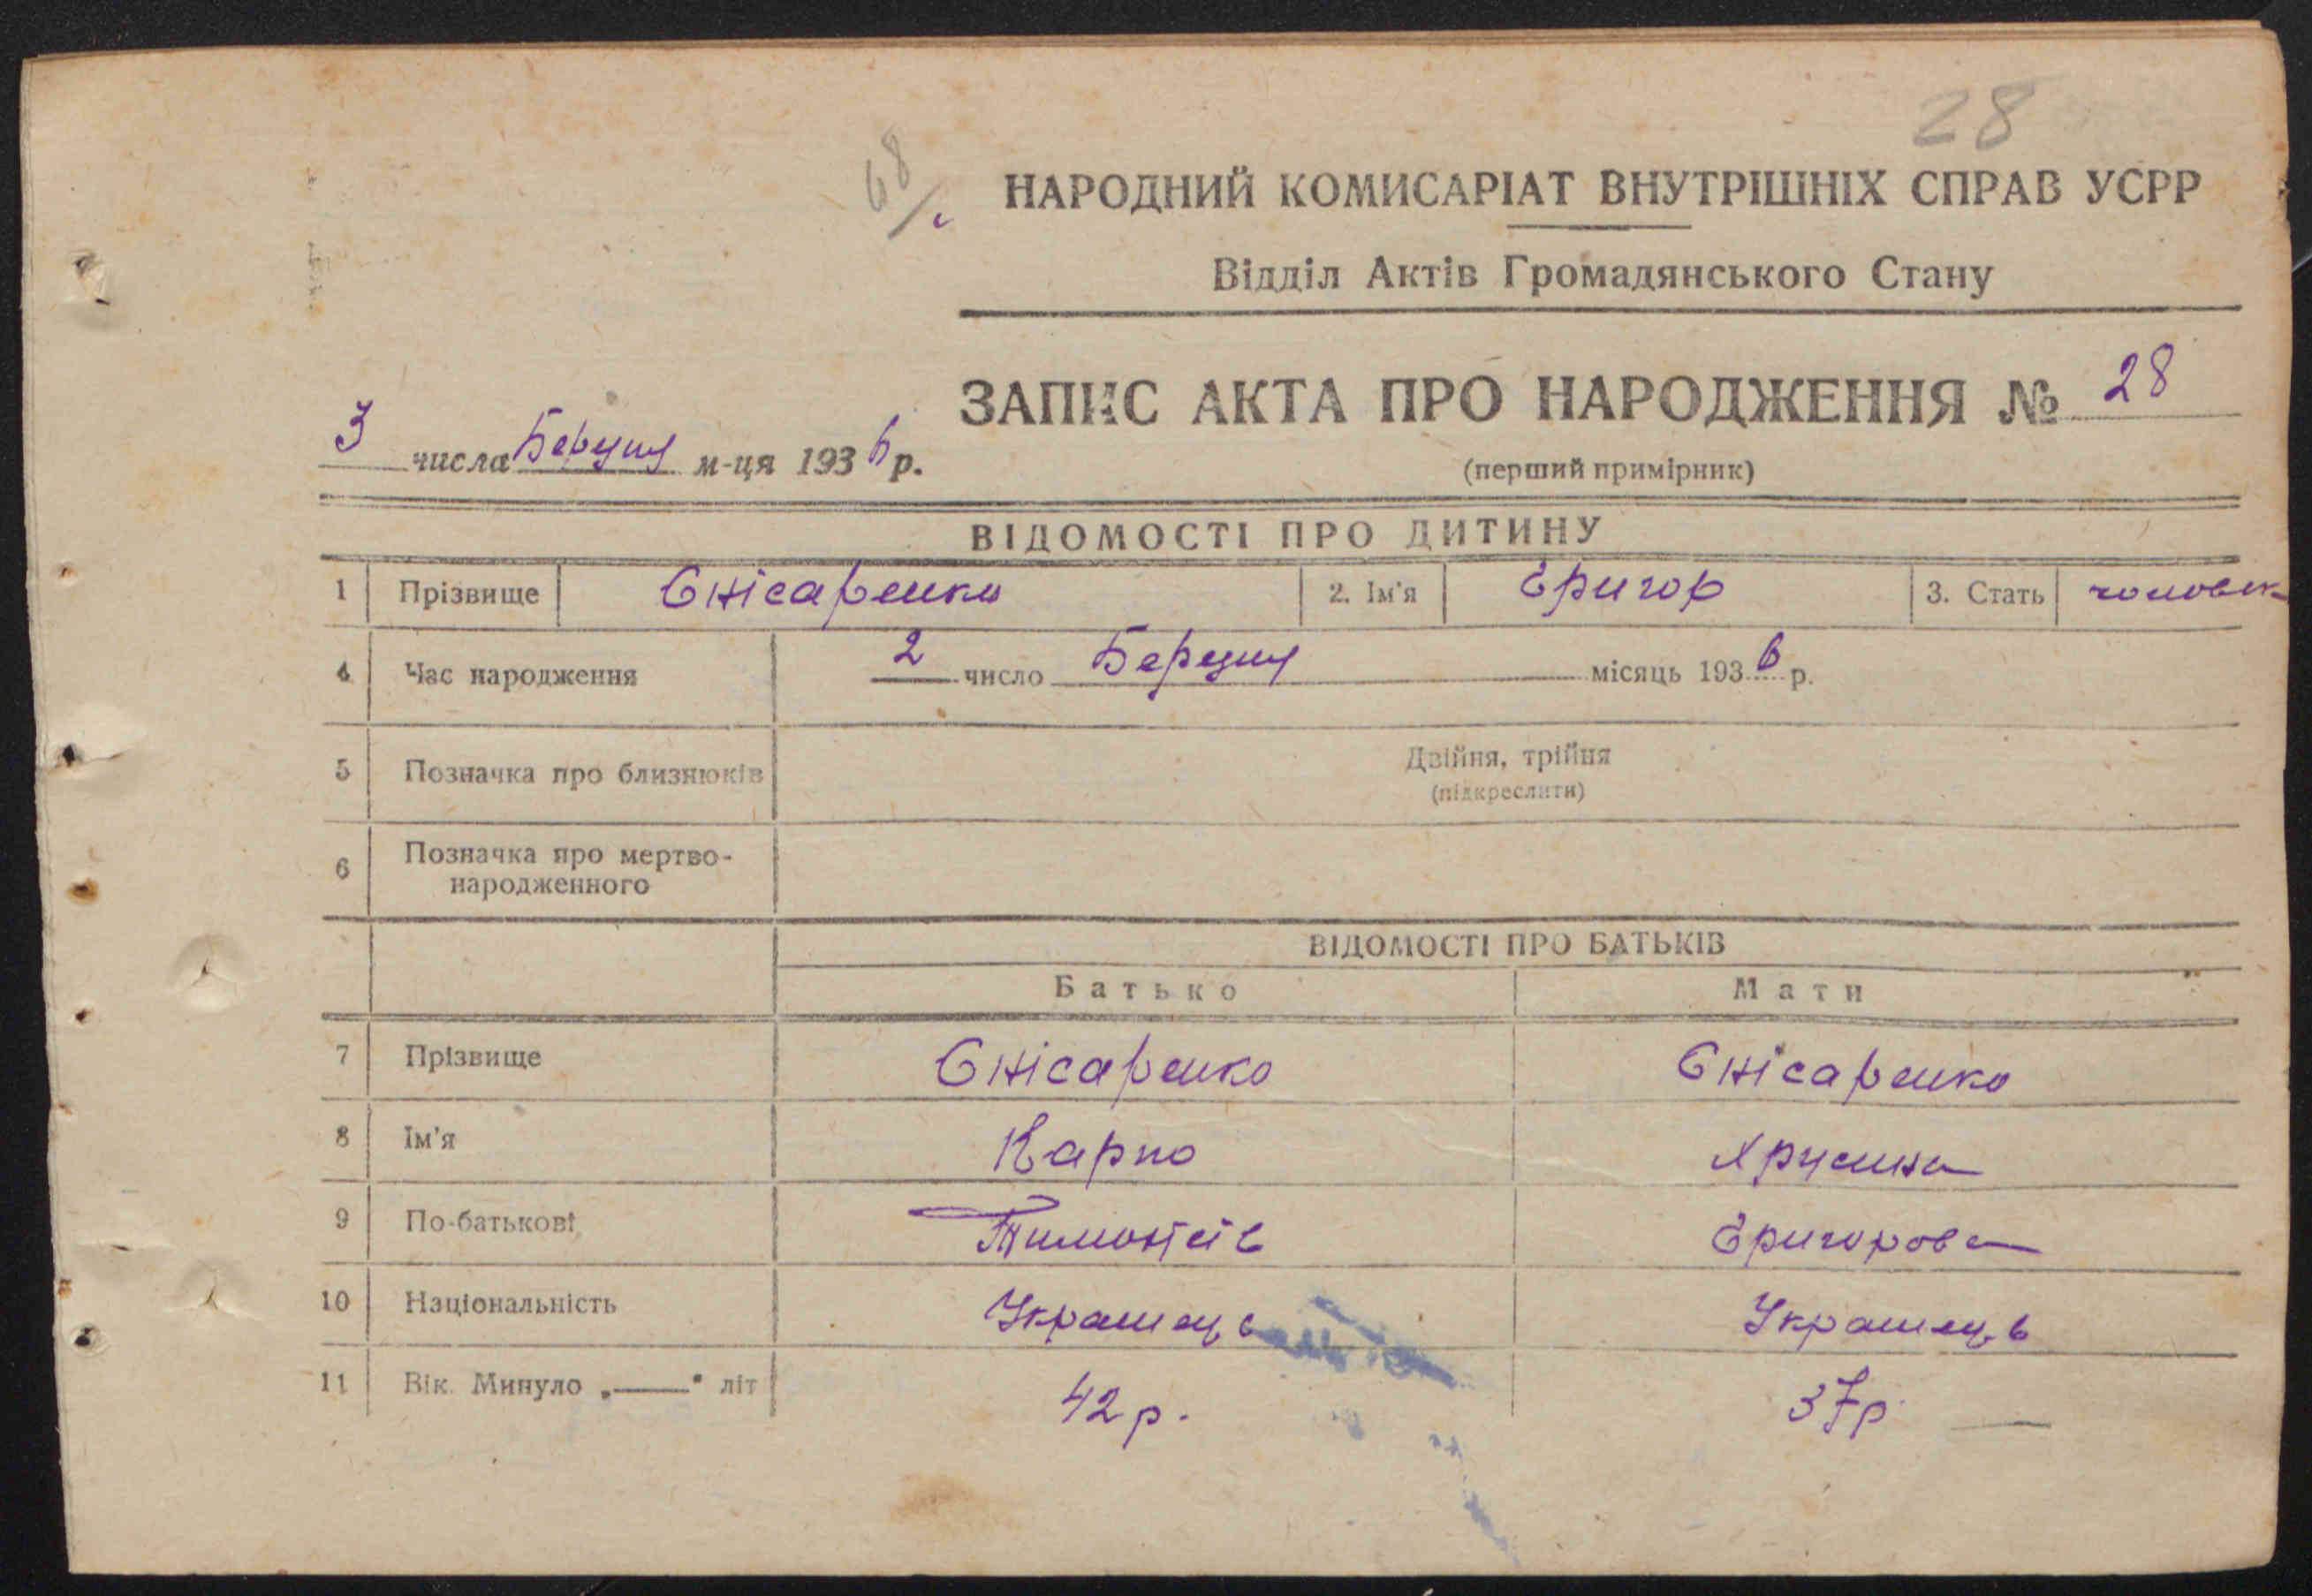 28
68/
НАРОДНИЙ КОМИСАРІАТ ВНУТРІШНІХ СПРАВ УСРР
Відділ Актів Громадянського Стану
ЗАПИС АКТА ПРО НАРОДЖЕННЯ № 28
3 числа Березня м-ця 1936 р.
(перший примірник)
ВІДОМОСТІ ПРО ДИТИНУ
1 Прізвище Снісаренко 2. Ім'я Григор 3. Стать чоловік
4 Час народження 2 число Березня місяць 1936 р.
5 Позначка про близнюків Двійня, трійня
(підкреслити)
6 Позначка про мертво-
народженного
ВІДОМОСТІ ПРО БАТЬКІВ
Батько Мати
7 Прізвище Снісаренко Снісаренко
8 Ім'я Карпо Хрусина
9 По-батькові Тимофіїв Григорова
10 Національність Українець Українець
11 Вік. Минуло „——" літ 42 р. 37 р